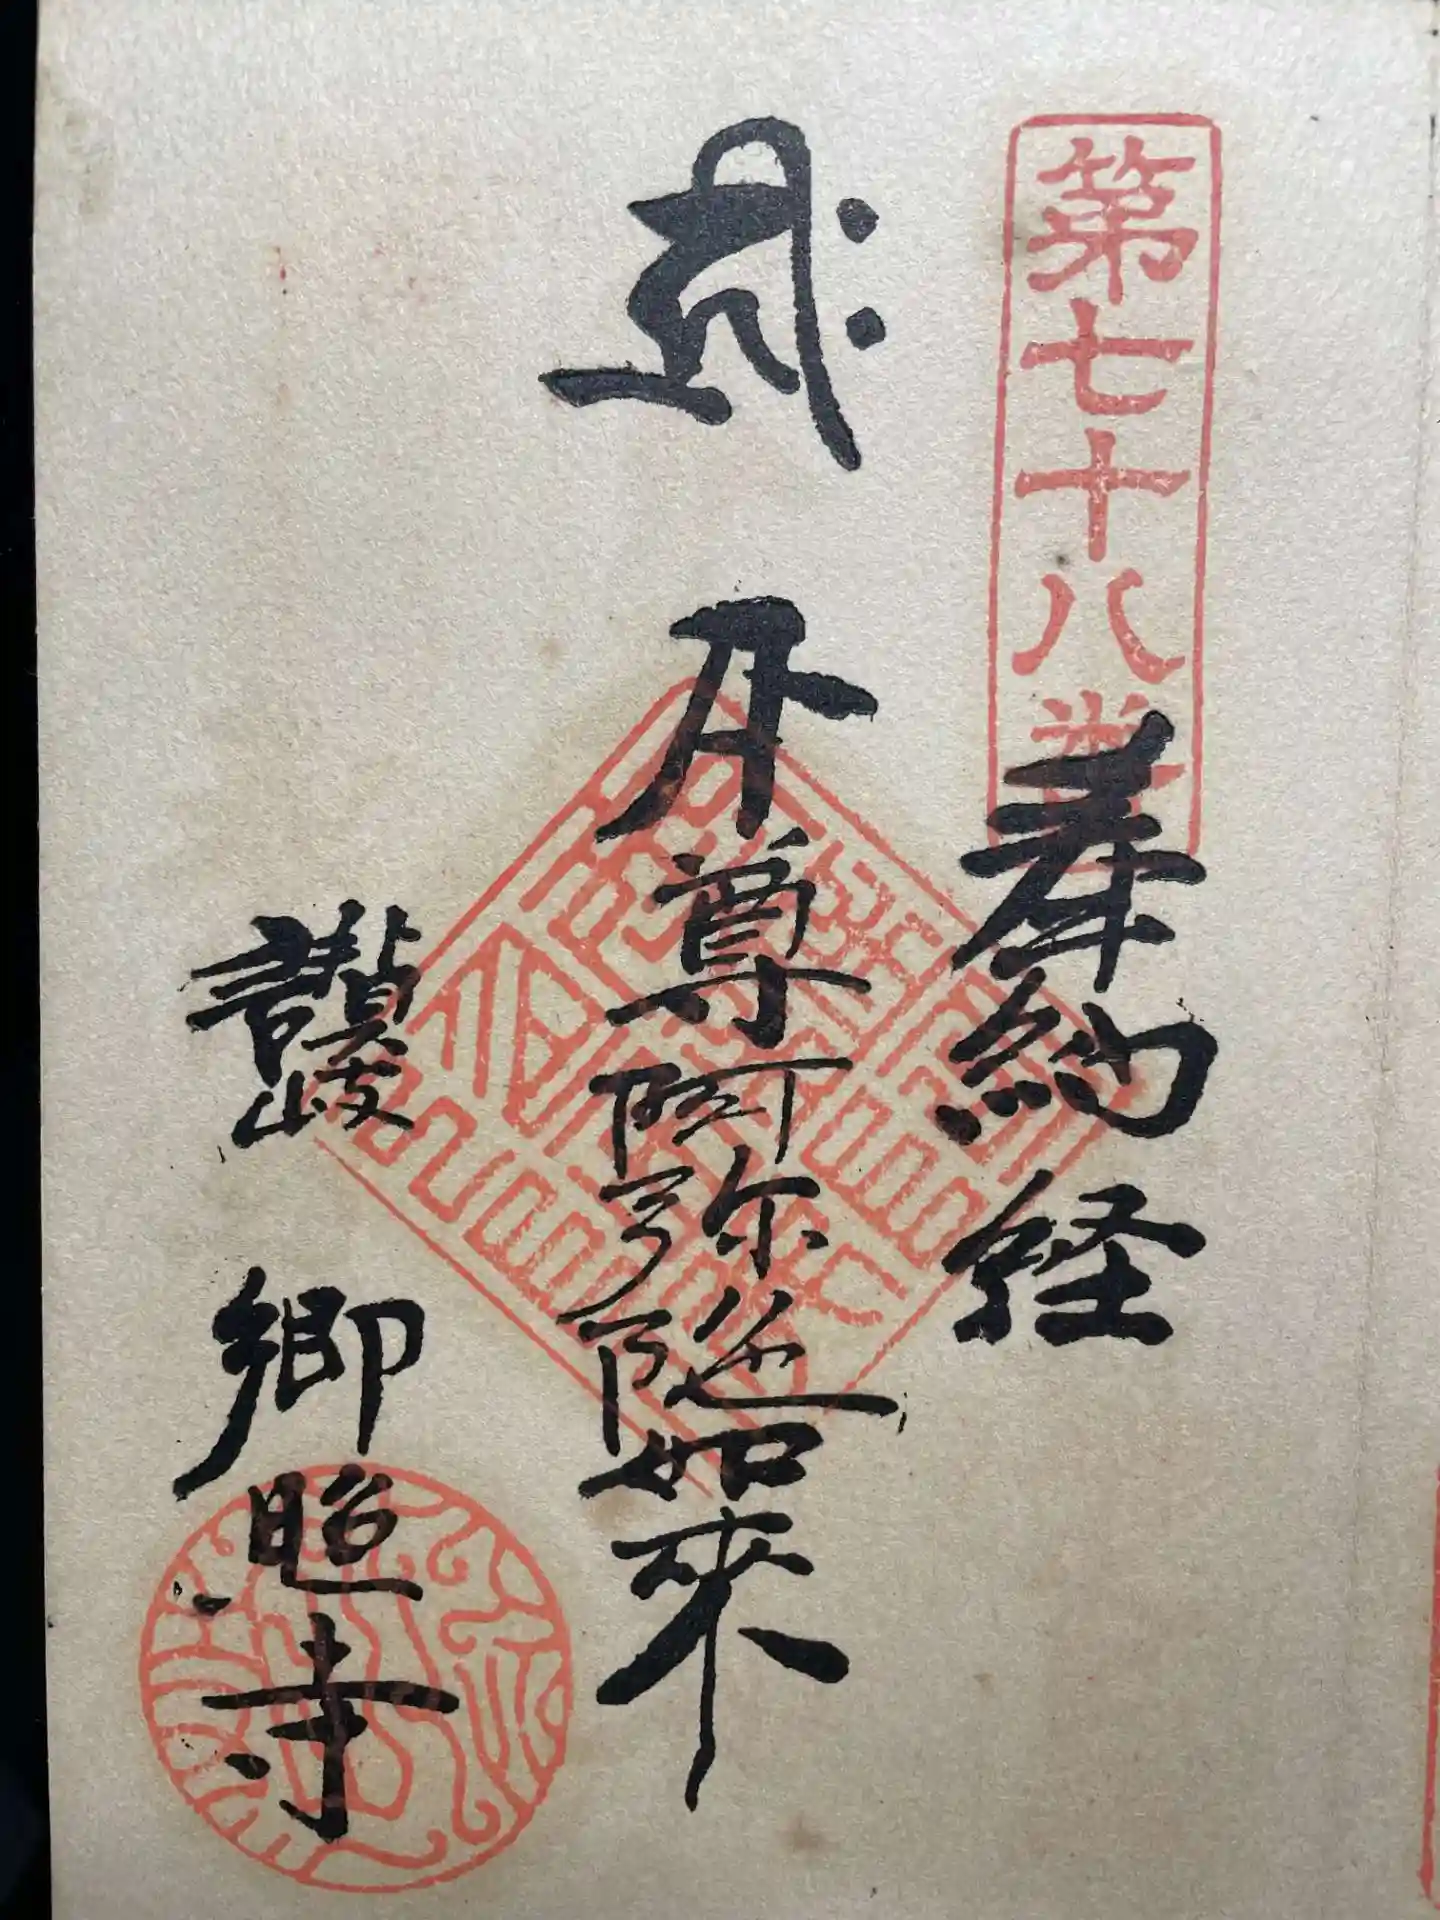 第七十八
奉納経
𑖮𑖿𑖨𑖱𑖾
本尊阿弥陀如來
讃岐 郷照寺